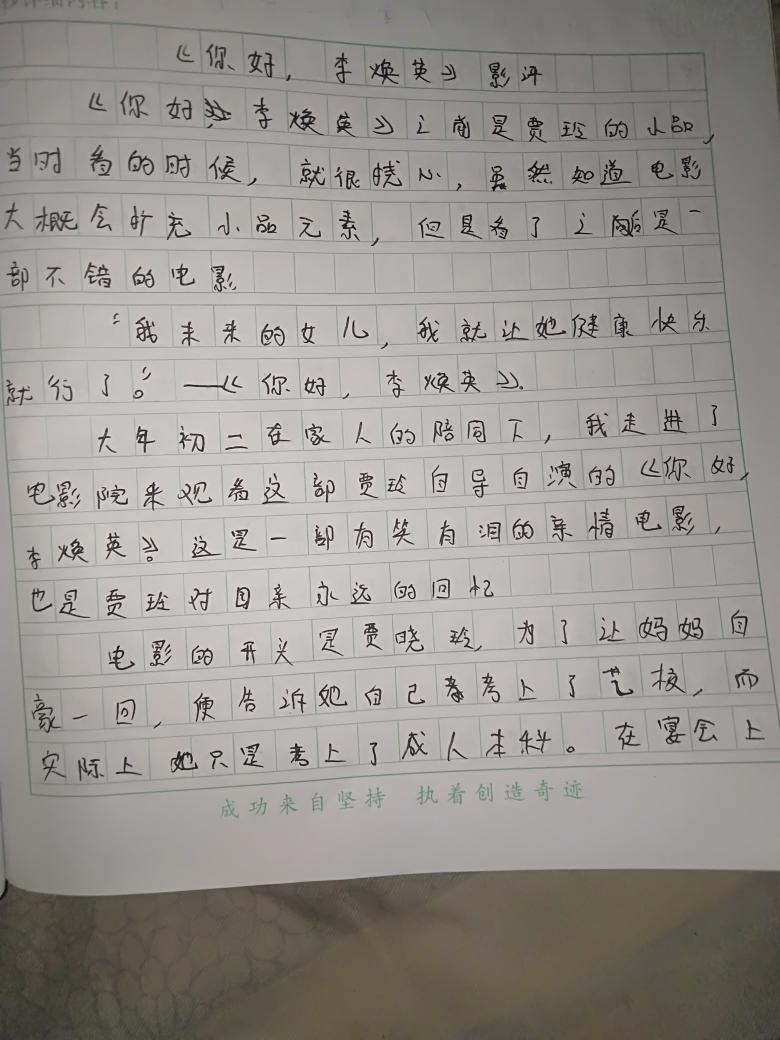 《你好，李焕英》影评
《你好，李焕英》之前是贾玲的小品，
当时看的时候，就很晓心，虽然知道电影
大概会扩充小品元素，但是看了之后是一
部不错的电影
“我未来的女儿，我就让她健康快乐
就行了。”——《你好，李焕英》。
大年初二在家人的陪同下，我走进了
电影院来观看这部贾玲自导自演的《你好，
李焕英》。这是一部有笑有泪的亲情电影，
也是贾玲对母亲永远的回忆
电影的开头是贾晓玲，为了让妈妈自
豪一回，便告诉她自己考上了艺校，而
实际上她只是考上了成人本科。在宴会上
成功来自坚持 执着创造奇迹